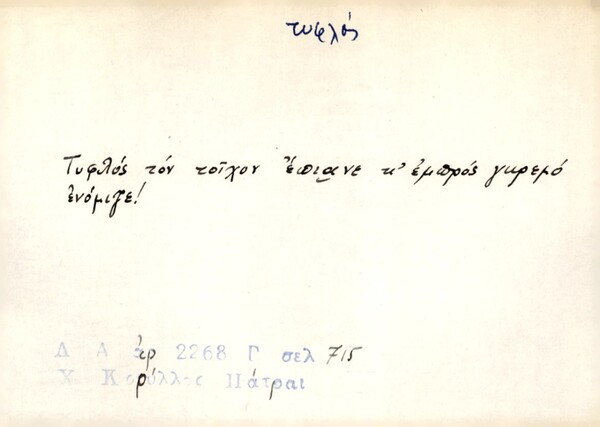 τυφλός
Τυφλός τόν τοῖχον ἔπιανε κ' ἐμπρός γκρεμό
ἐνόμιζε!
Λ Α ἀρ 2268 Γ σελ 715
Χ Κορύλλος Πάτραι